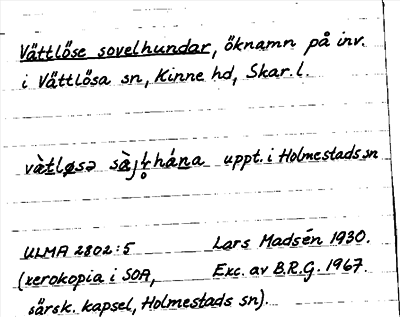 Vättlöse sovelhundar, öknamn på inv.
i Vättlösa sn, Kinne hd, Skar. l.
uppt. i Holmestads sn
ULMA 2802:5 Lars Madsén 1930.
(xerokopia i SOA, Exc. av B.R.G. 1967.
särsk. kapsel, Holmestads sn).